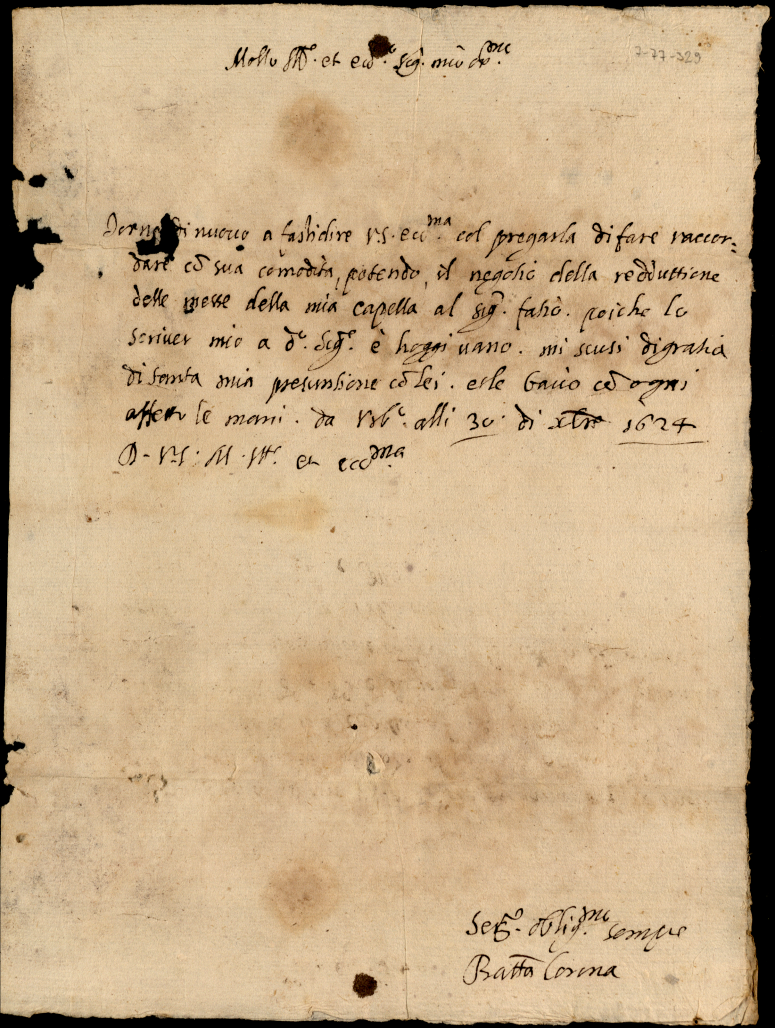 Molto Ill.e et ecc.te Sig. mio oss.mo
7-77-329
Torno di nuovo a fastidire V.S. ecc.ma col pregarla di fare raccor=
dare cõ sua cõmodità, potendo, il negotio della redduttione
delle messe della mia capella al Sig.r fatio. poiche lo
scriver mio a d.o Sig.re è hoggi vano. mi scusi di gratia
di tanta mia presuntione cõ lei. et le bacio cõ ogni
affetto le mani. da Urb.o alli 30 di xbre 1624
D. V.S. M. Ill.e et ecc.ma
Ser.re oblig.mo sempre
Batta Corona